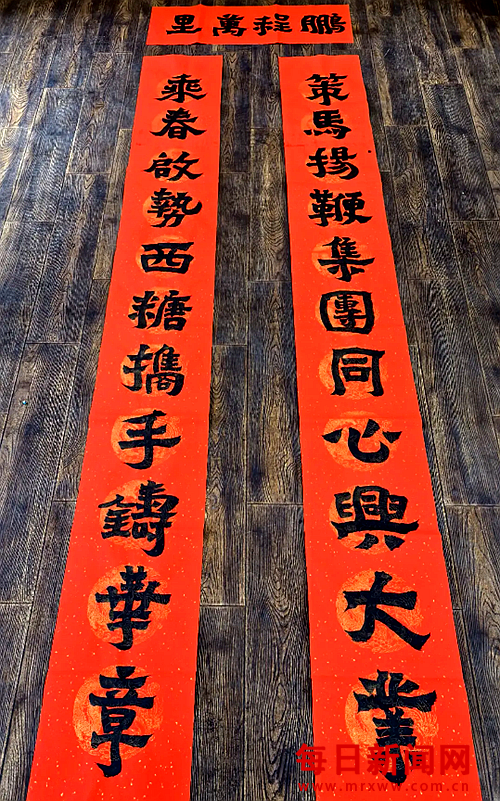 鵬程萬里
策馬揚鞭集團同心興大業
乘春啟勢西糖攜手鑄華章
每日新闻网
www.mrxww.com.cn